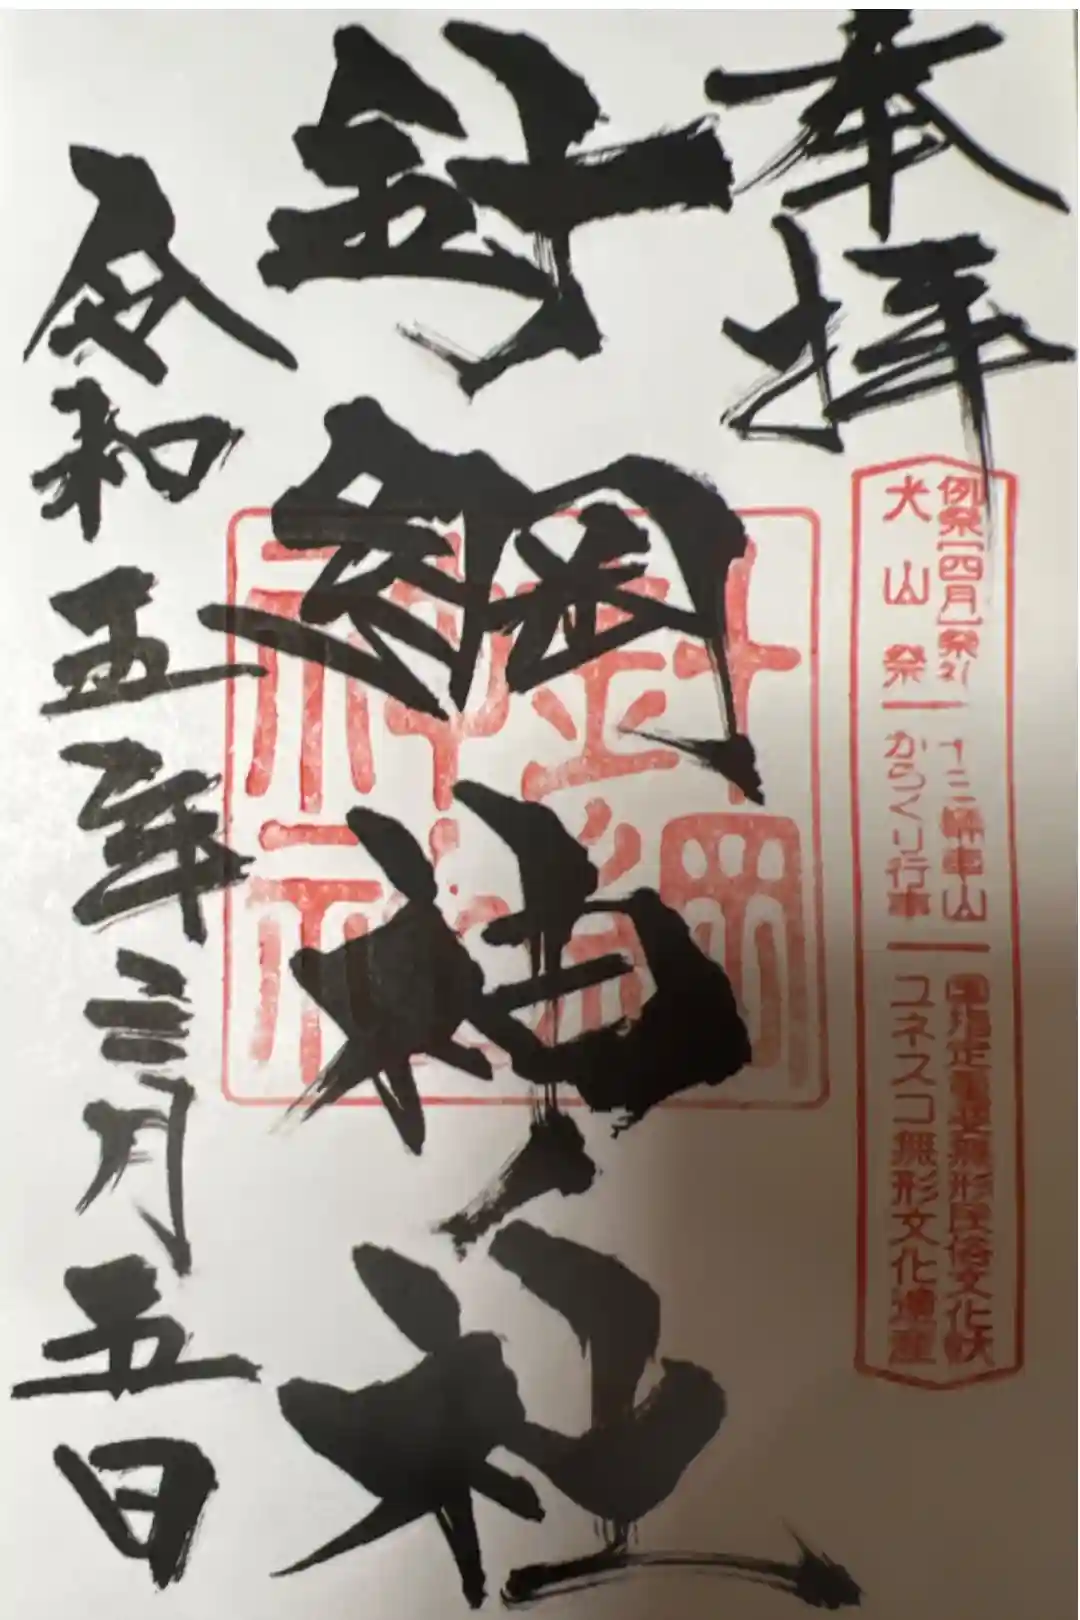 奉拝
例祭[四月]祭礼 十三輌車山 国指定重要無形民俗文化財
犬山祭 からくり行事 ユネスコ無形文化遺産
針綱神社
針綱
神社
令和五年三月五日